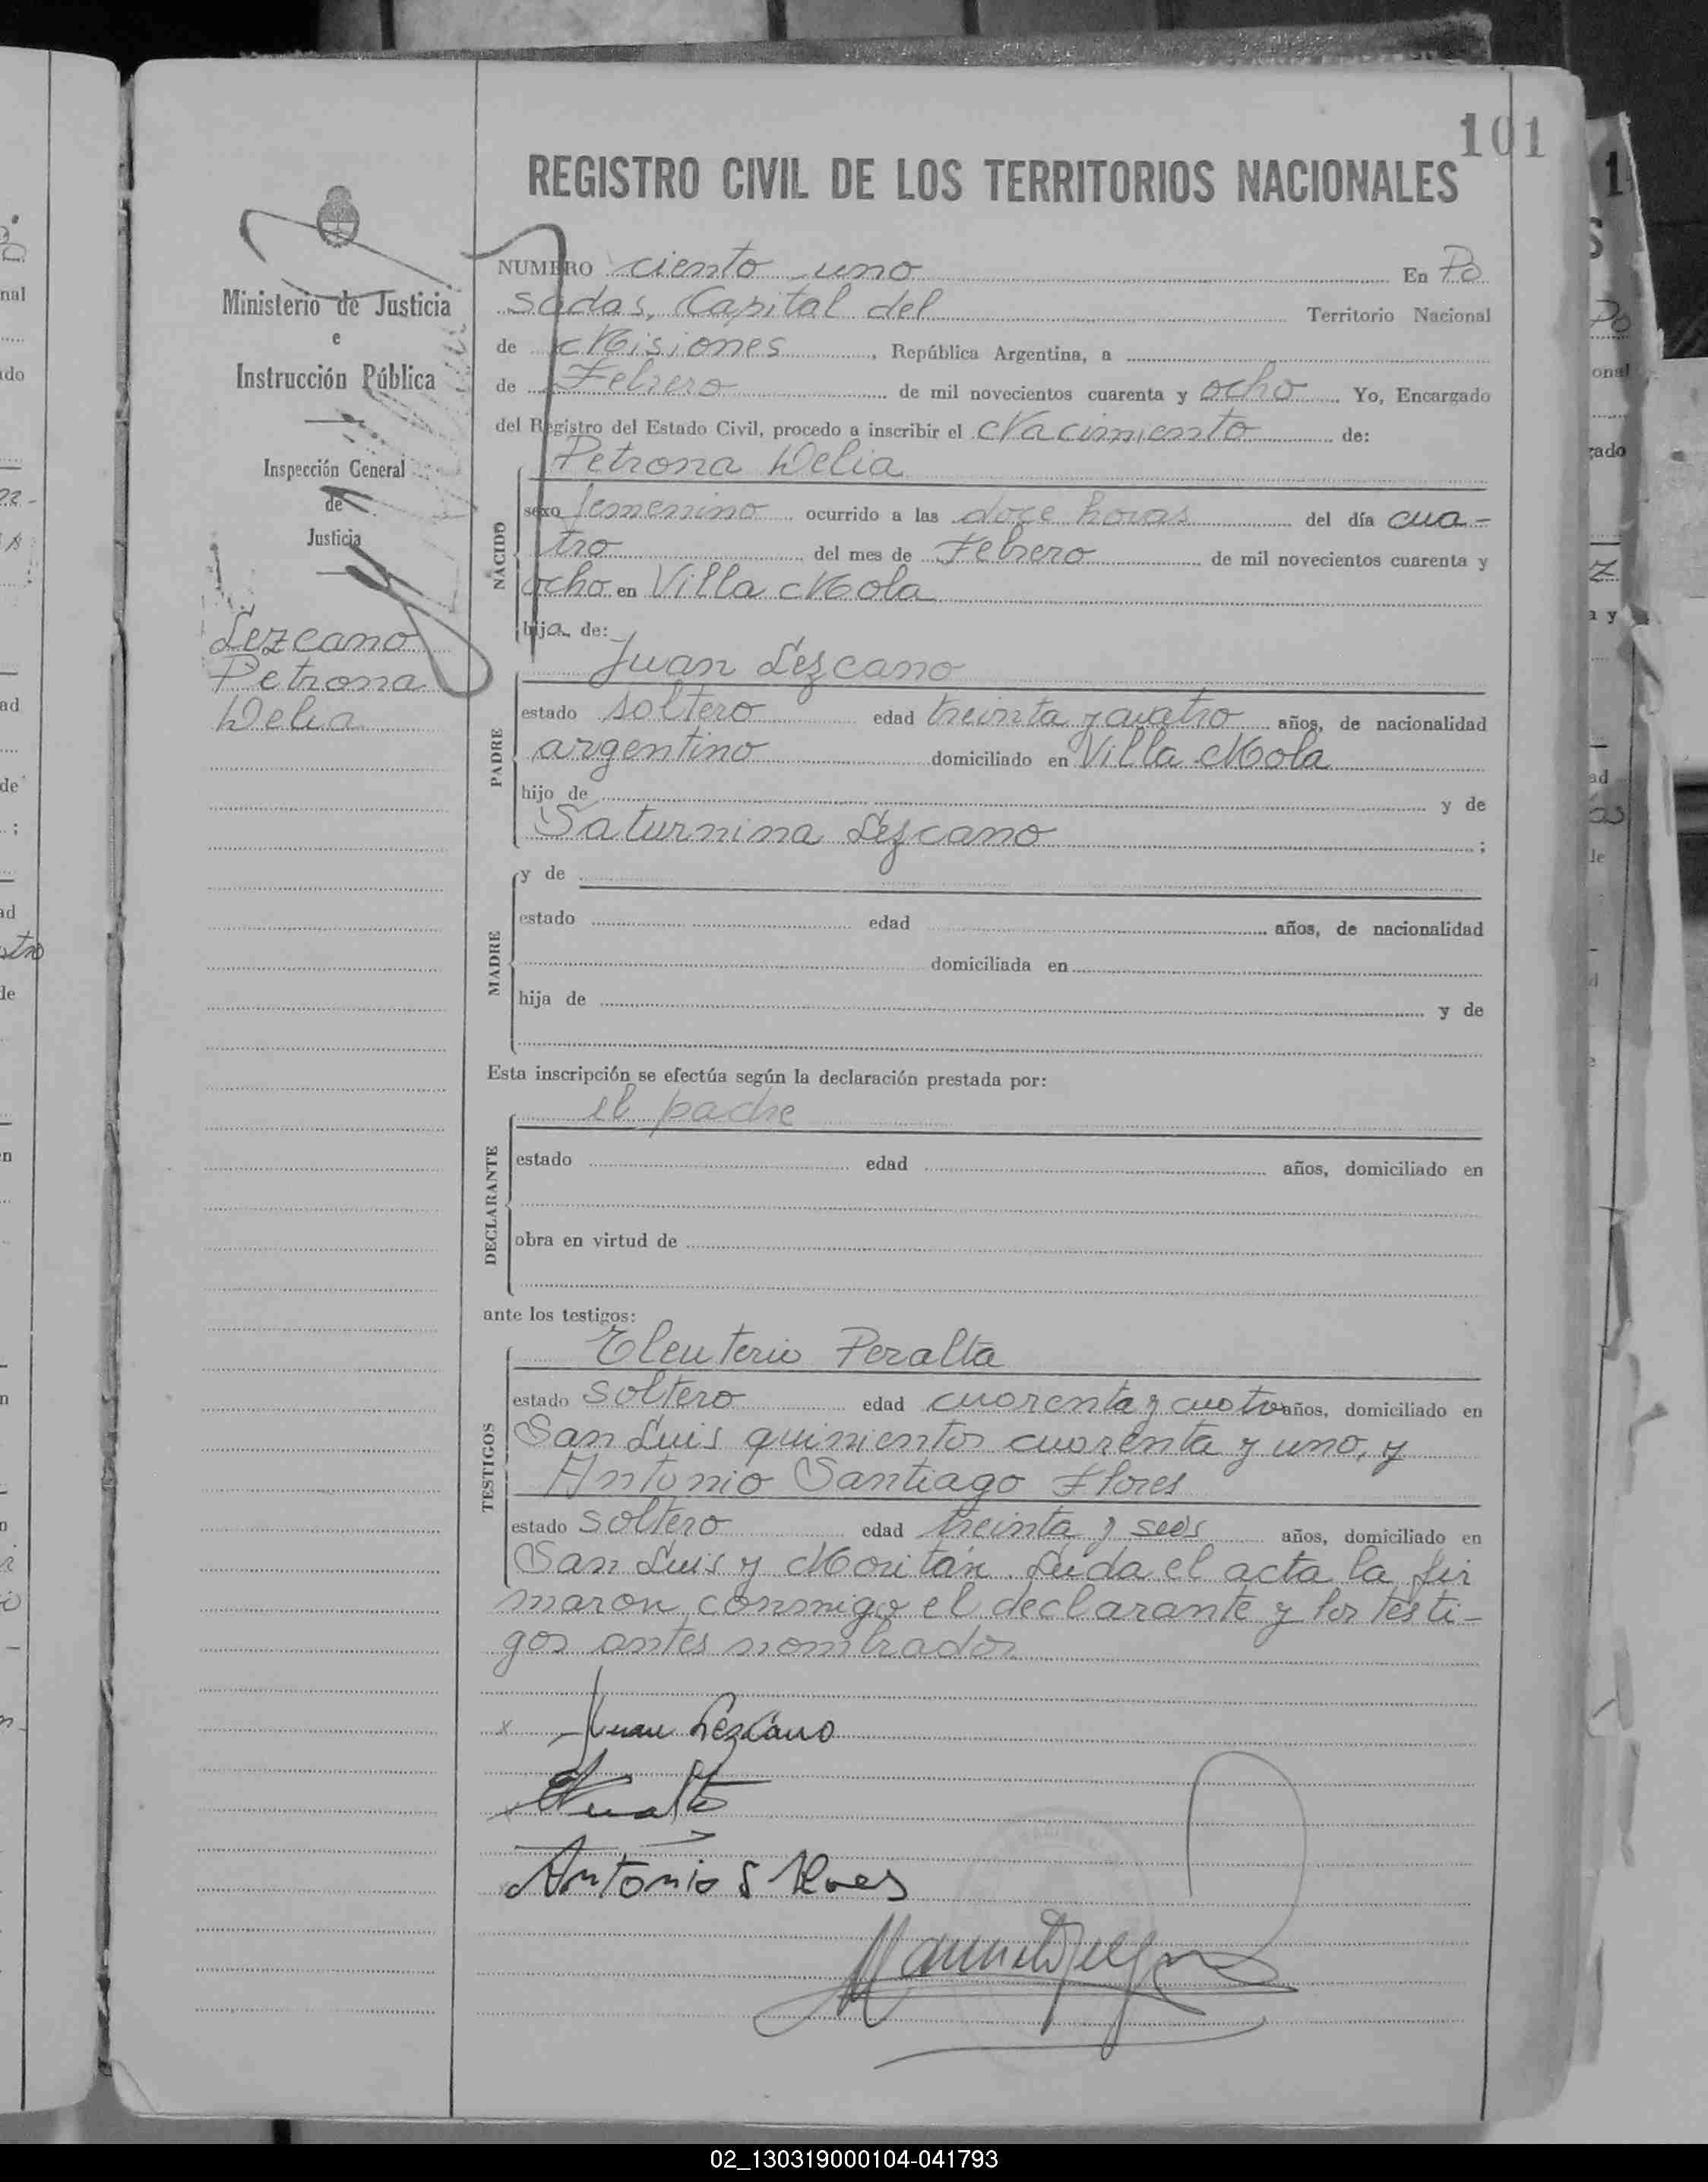 101
REGISTRO CIVIL DE LOS TERRITORIOS NACIONALES
Ministerio de Justicia
e
Instrucción Pública
Inspección General
de
Justicia
Lezcano
Petrona
Delia
NUMERO ciento uno En Po
sadas, Capital del Territorio Nacional
de Misiones, República Argentina, a
de Febrero de mil novecientos cuarenta y ocho. Yo, Encargado
del Registro del Estado Civil, procedo a inscribir el Nacimiento de:
NACIDO
Petrona Delia
sexo femenino ocurrido a las doce horas del día cua-
tro del mes de Febrero de mil novecientos cuarenta y
ocho en Villa Mola
hija de:
PADRE
Juan Lezcano
estado soltero edad treinta y cuatro años, de nacionalidad
argentino domiciliado en Villa Mola
hijo de y de
Saturnina Lezcano ;
MADRE
y de
estado edad años, de nacionalidad
domiciliada en
hija de y de
Esta inscripción se efectúa según la declaración prestada por:
DECLARANTE
el padre
estado edad años, domiciliado en
obra en virtud de
ante los testigos:
TESTIGOS
Eleuterio Peralta
estado soltero edad cuarenta y cuatro años, domiciliado en
San Luis quinientos cuarenta y uno, y
Antonio Santiago Flores
estado soltero edad treinta y seis años, domiciliado en
San Luis y Moritán. Leída el acta la fir
maron conmigo el declarante y los testi-
gos antes nombrados
x Juan Lezcano
Antonio S Flores
02_130319000104-041793